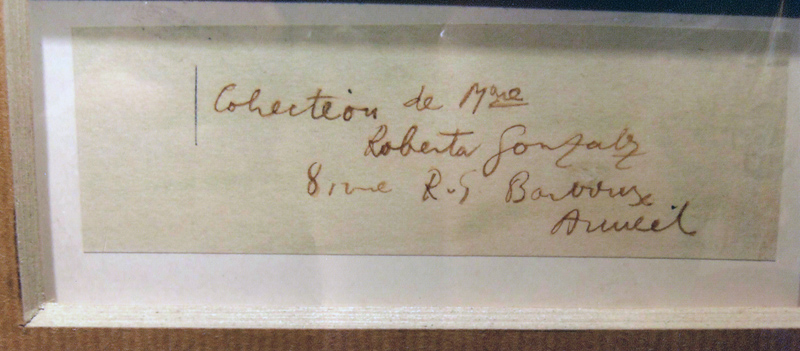 Collection de Mme
Roberta Gonzalez
8 rue R-S Barboux
Arcueil